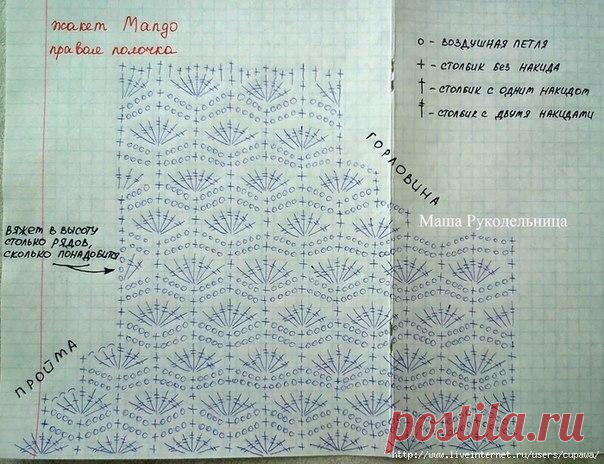 жакет Мапдо
правая полочка
о - ВОЗДУШНАЯ ПЕТЛЯ
+ - СТОЛБИК БЕЗ НАКИДА
† - СТОЛБИК С ОДНИМ НАКИДОМ
‡ - СТОЛБИК С ДВУМЯ НАКИДАМИ
ГОРЛОВИНА
Маша Рукодельница
ВЯЖЕТ В ВЫСОТУ
СТОЛЬКО РЯДОВ,
СКОЛЬКО ПОНАДОБИТСЯ
ПРОЙМА
postila.ru
http://www.liveinternet.ru/users/cupawa/